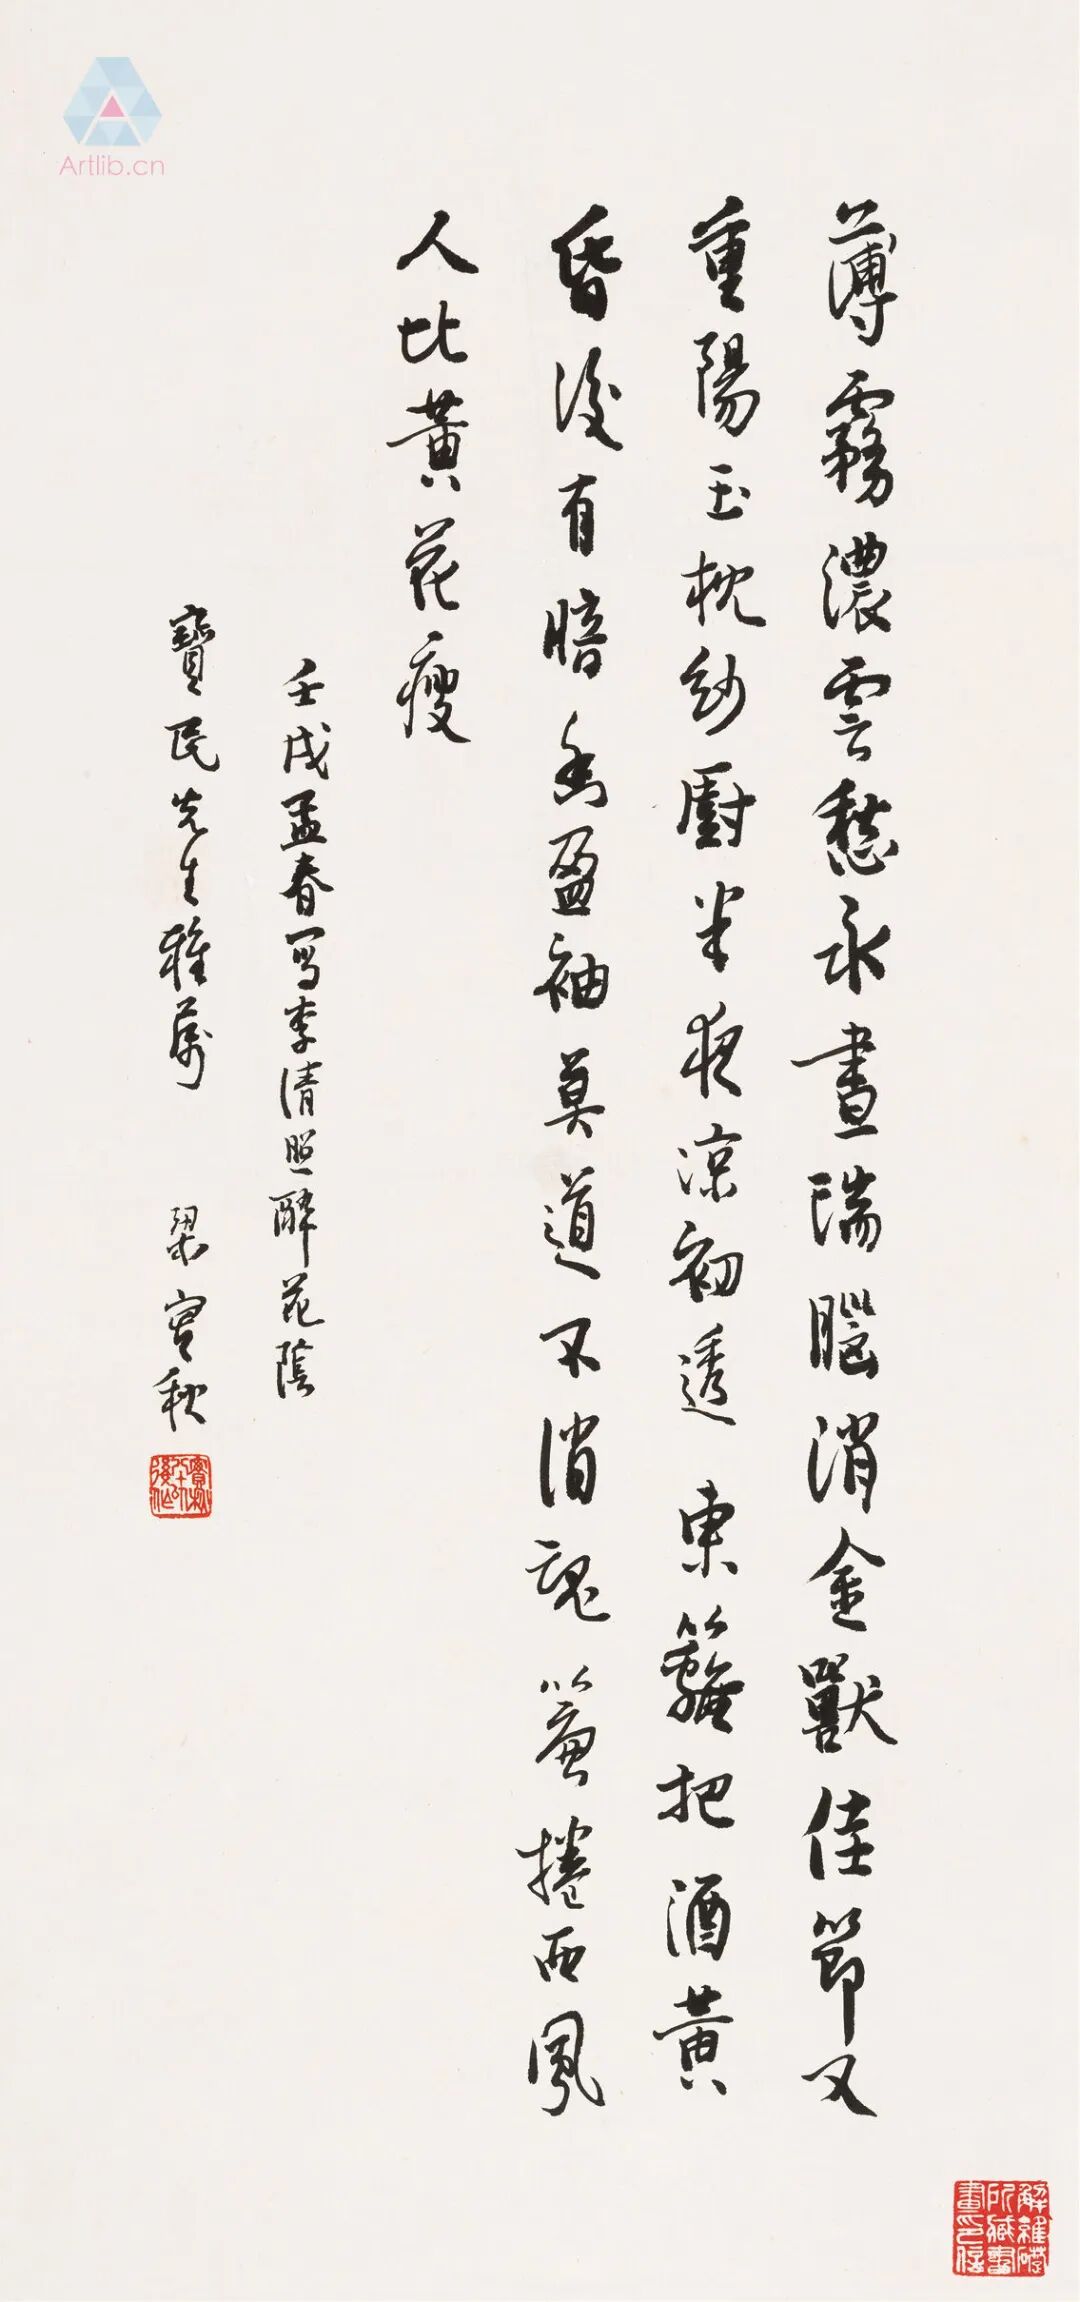 薄霧濃雲愁永晝瑞腦消金獸佳節又
重陽玉枕紗廚半夜涼初透東籬把酒黃
昏後有暗香盈袖莫道不消魂簾捲西風
人比黃花瘦
壬戌孟春寫李清照醉花陰
寶民先生雅屬
梁實秋
Artlib.cn